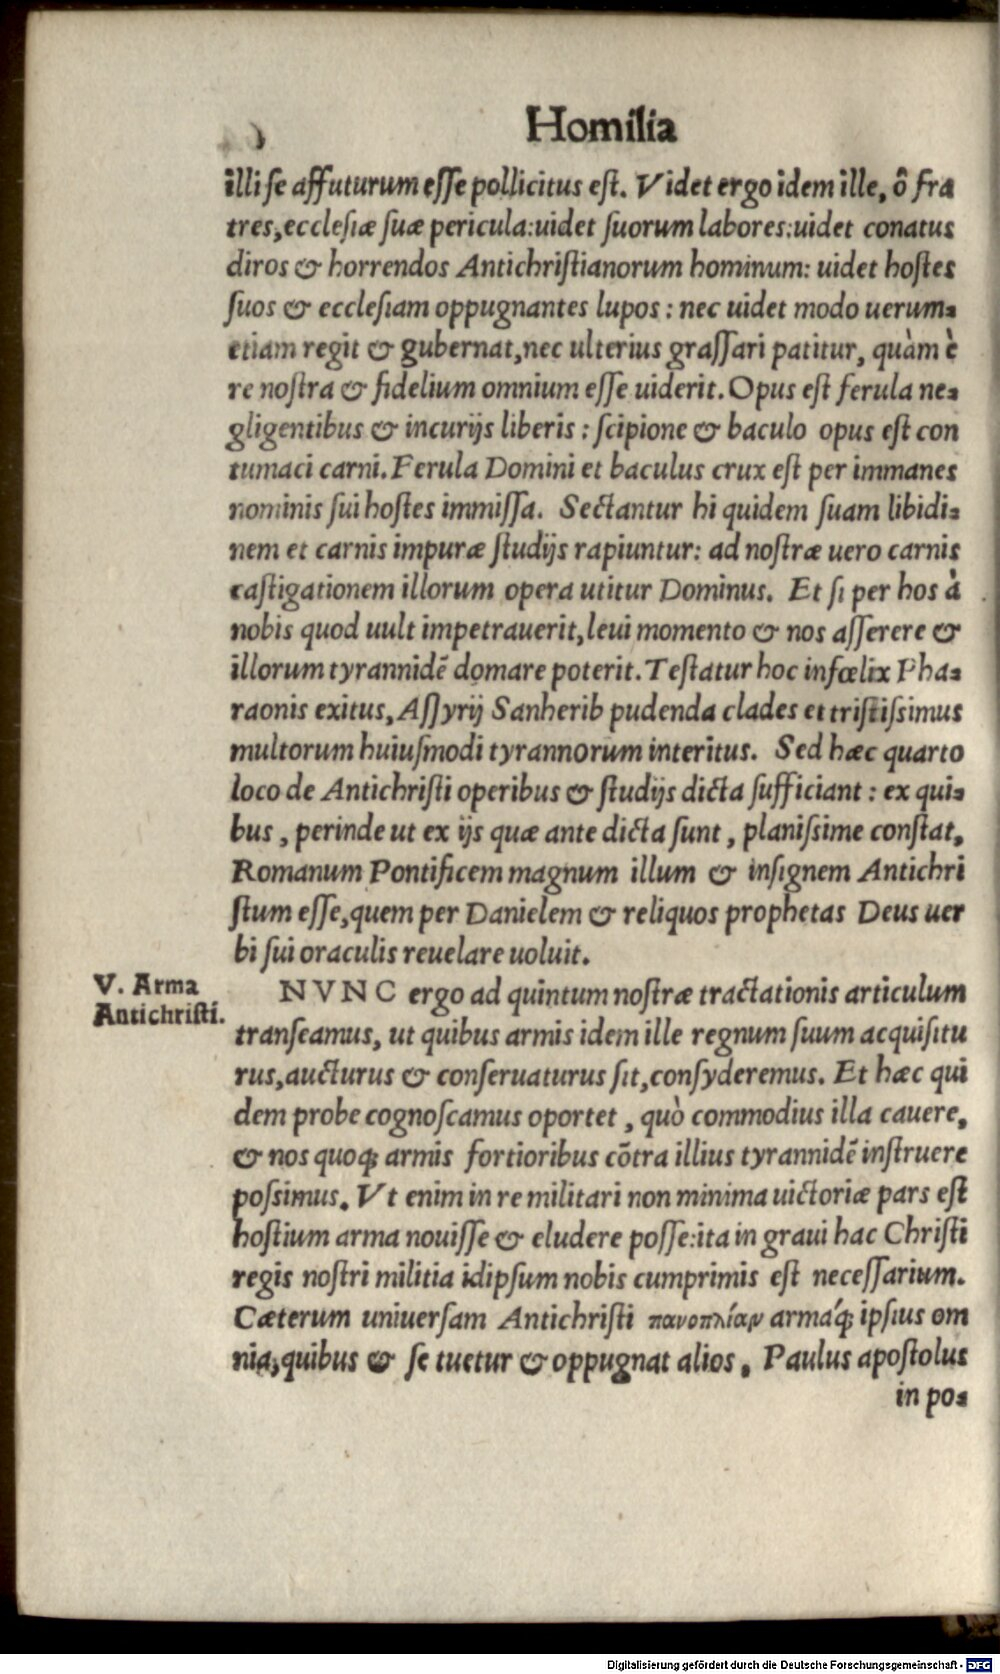 Homilia
illi se affuturum esse pollicitus est. Videt ergo idem ille, ô fra
tres, ecclesiæ suæ pericula: uidet suorum labores: uidet conatus
diros & horrendos Antichristianorum hominum: uidet hostes
suos & ecclesiam oppugnantes lupos: nec uidet modo uerum-
etiam regit & gubernat, nec ulterius grassari patitur, quàm è
re nostra & fidelium omnium esse uiderit. Opus est ferula ne-
gligentibus & incurijs liberis: scipione & baculo opus est con
tumaci carni. Ferula Domini et baculus crux est per immanes
nominis sui hostes immissa. Sectantur hi quidem suam libidi-
nem et carnis impuræ studijs rapiuntur: ad nostræ uero carnis
castigationem illorum opera utitur Dominus. Et si per hos à
nobis quod uult impetrauerit, leui momento & nos asserere &
illorum tyrannidē domare poterit. Testatur hoc infœlix Pha-
raonis exitus, Assyrij Sanherib pudenda clades et tristissimus
multorum huiusmodi tyrannorum interitus. Sed hæc quarto
loco de Antichristi operibus & studijs dicta sufficiant: ex qui-
bus, perinde ut ex ijs quæ ante dicta sunt, planissime constat,
Romanum Pontificem magnum illum & insignem Antichri
stum esse, quem per Danielem & reliquos prophetas Deus uer
bi sui oraculis reuelare uoluit.
V. Arma
Antichristi.
NVNC ergo ad quintum nostræ tractationis articulum
transeamus, ut quibus armis idem ille regnum suum acquisitu
rus, aucturus & conseruaturus sit, consyderemus. Et hæc qui
dem probe cognoscamus oportet, quò commodius illa cauere,
& nos quoq; armis fortioribus cōtra illius tyrannidē instruere
possimus. Vt enim in re militari non minima uictoriæ pars est
hostium arma nouisse & eludere posse: ita in graui hac Christi
regis nostri militia idipsum nobis cumprimis est necessarium.
Cæterum uniuersam Antichristi πανοπλίαν armáq; ipsius om
nia, quibus & se tuetur & oppugnat alios, Paulus apostolus
in po-
Digitalisierung gefördert durch die Deutsche Forschungsgemeinschaft - DFG